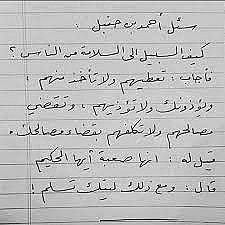 سئل أحمد بن حنبل :
كيف السبيل الى السلامة من الناس ؟
فأجاب : تعطيهم ولا تأخذ منهم ،
ويؤذونك ولا تؤذيهم ، وتقضي
مصالحهم ولا تكلفهم بقضاء مصالحك .
قيل له : إنها صعبة أيها الحكيم
قال : ومع ذلك ليتك تسلم !